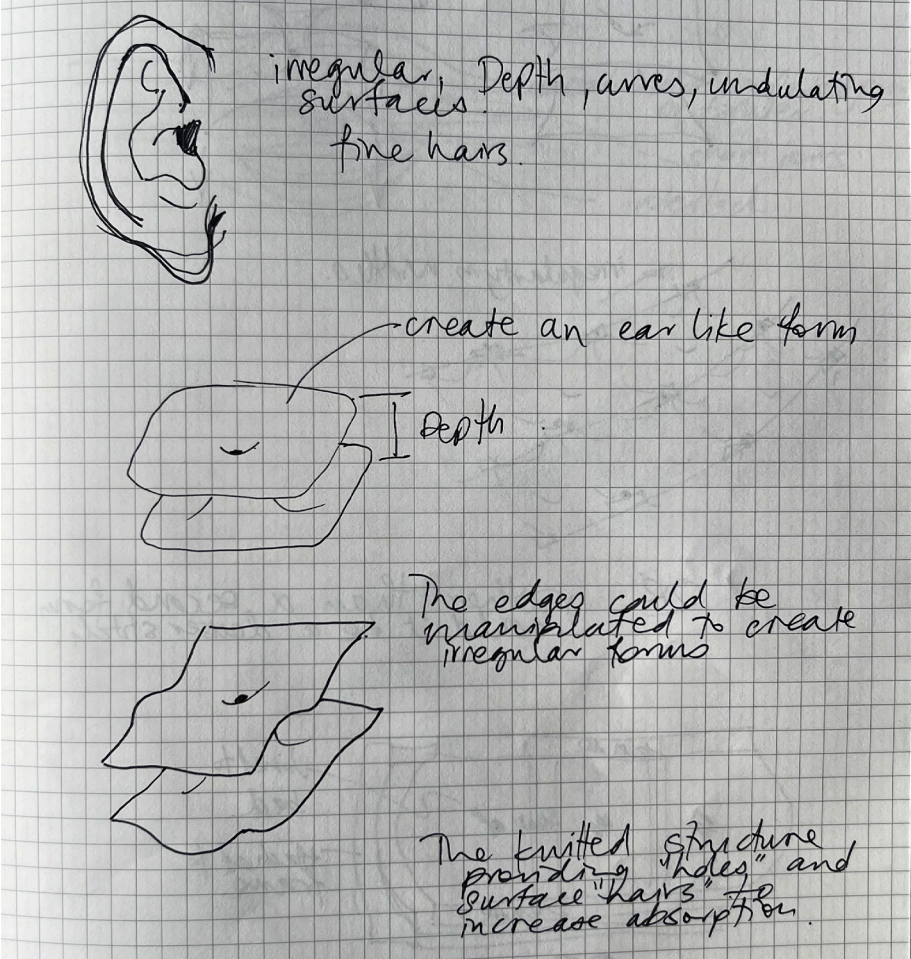 irregular, Depth, curves, undulating
surfaces.
fine hairs.
create an ear like form
Depth
The edges could be
manipulated to create
irregular forms
The knitted structure
providing "holes" and
surface "hairs" to
increase absorption.